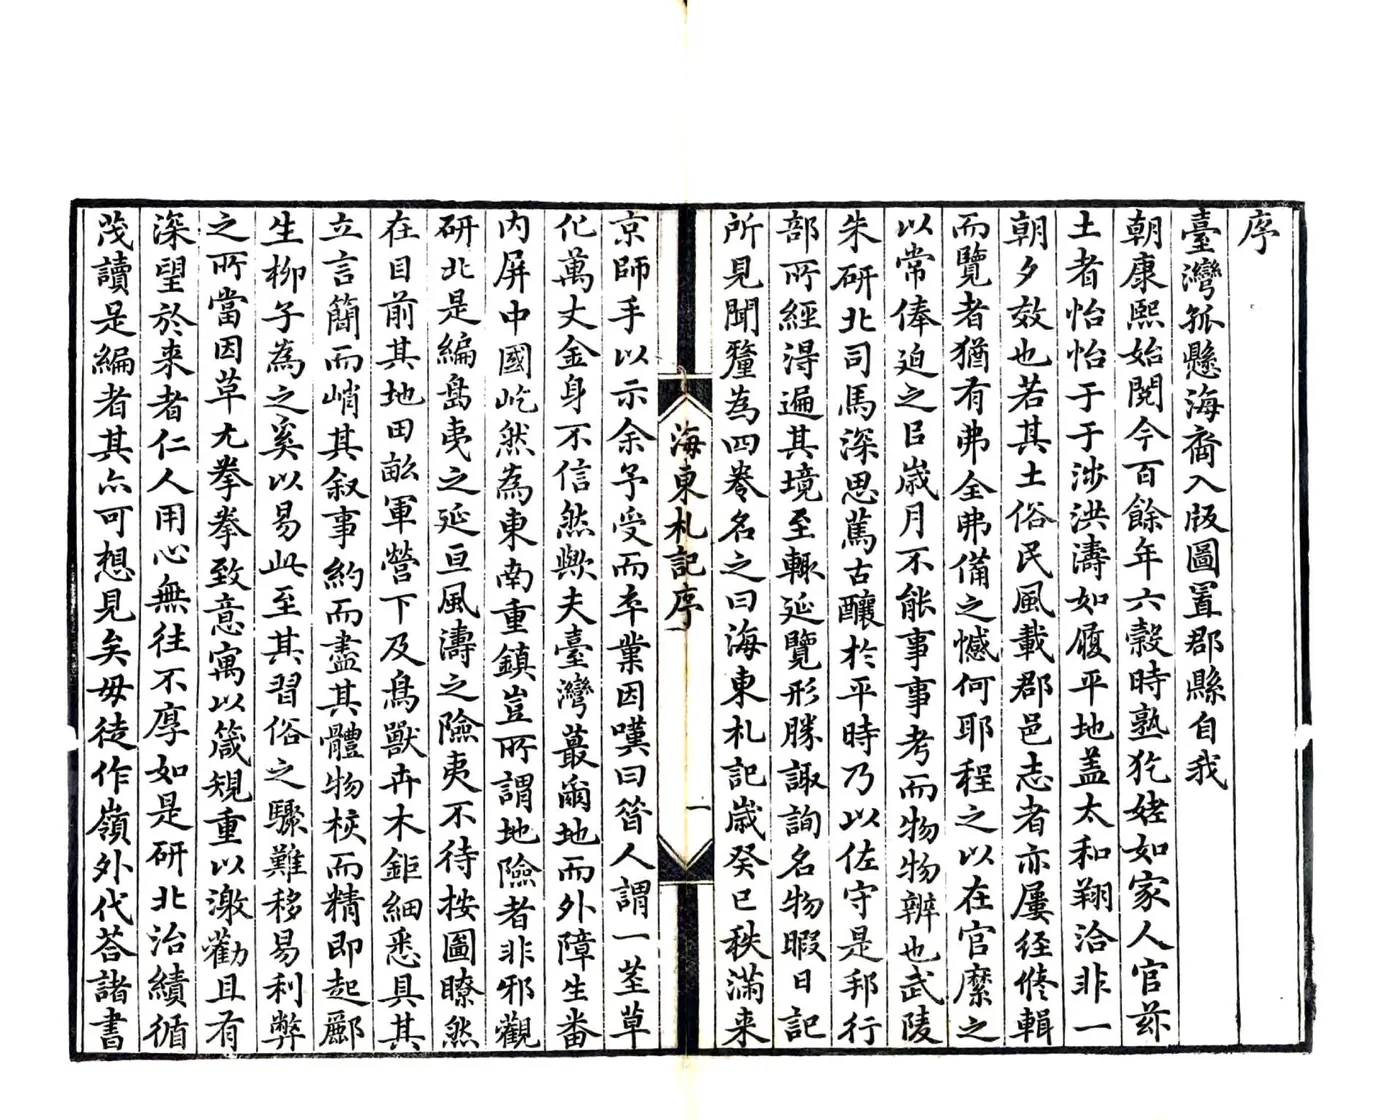 序
臺灣孤懸海裔入版圖置郡縣自我
朝康熙始閱今百餘年六穀時熟犵㹻如家人官茲
土者怡怡于于涉洪濤如履平地盖太和翔洽非一
朝夕效也若其土俗民風載郡邑志者亦屢经修輯
而覽者猶有弗全弗俻之憾何耶程之以在官縻之
以常俸迫之㠯歲月不能事事考而物物辨也武陵
朱研北司馬深思蔫古釀於平時乃以佐守是邦行
部所經淂遍其境至輙延覽形勝諏詢名物暇日記
所見聞釐為四卷名之曰海東札記歲癸巳秩滿来
海東札記序
一
京師手以示余予受而卒業因嘆曰昝人謂一莖草
化萬丈金身不信然歟夫臺灣蕞爾地而外障生番
内屏中國屹然為東南重鎮豈所謂地險者非邪觀
研北是編島夷之延亘風濤之險夷不待按圖瞭然
在目前其地田畝軍營下及鳥獸卉木鉅細悉具其
立言簡而峭其叙事約而盡其體物核而精即起酈
生柳子為之奚以易此至其習俗之驟難移易利弊
之所當因革尤拳拳致意寓以箴規重以激勸且有
深望於来者仁人用心無往不厚如是研北治績循
茂讀是編者其亦可想見矣毋徒作嶺外代荅諸書